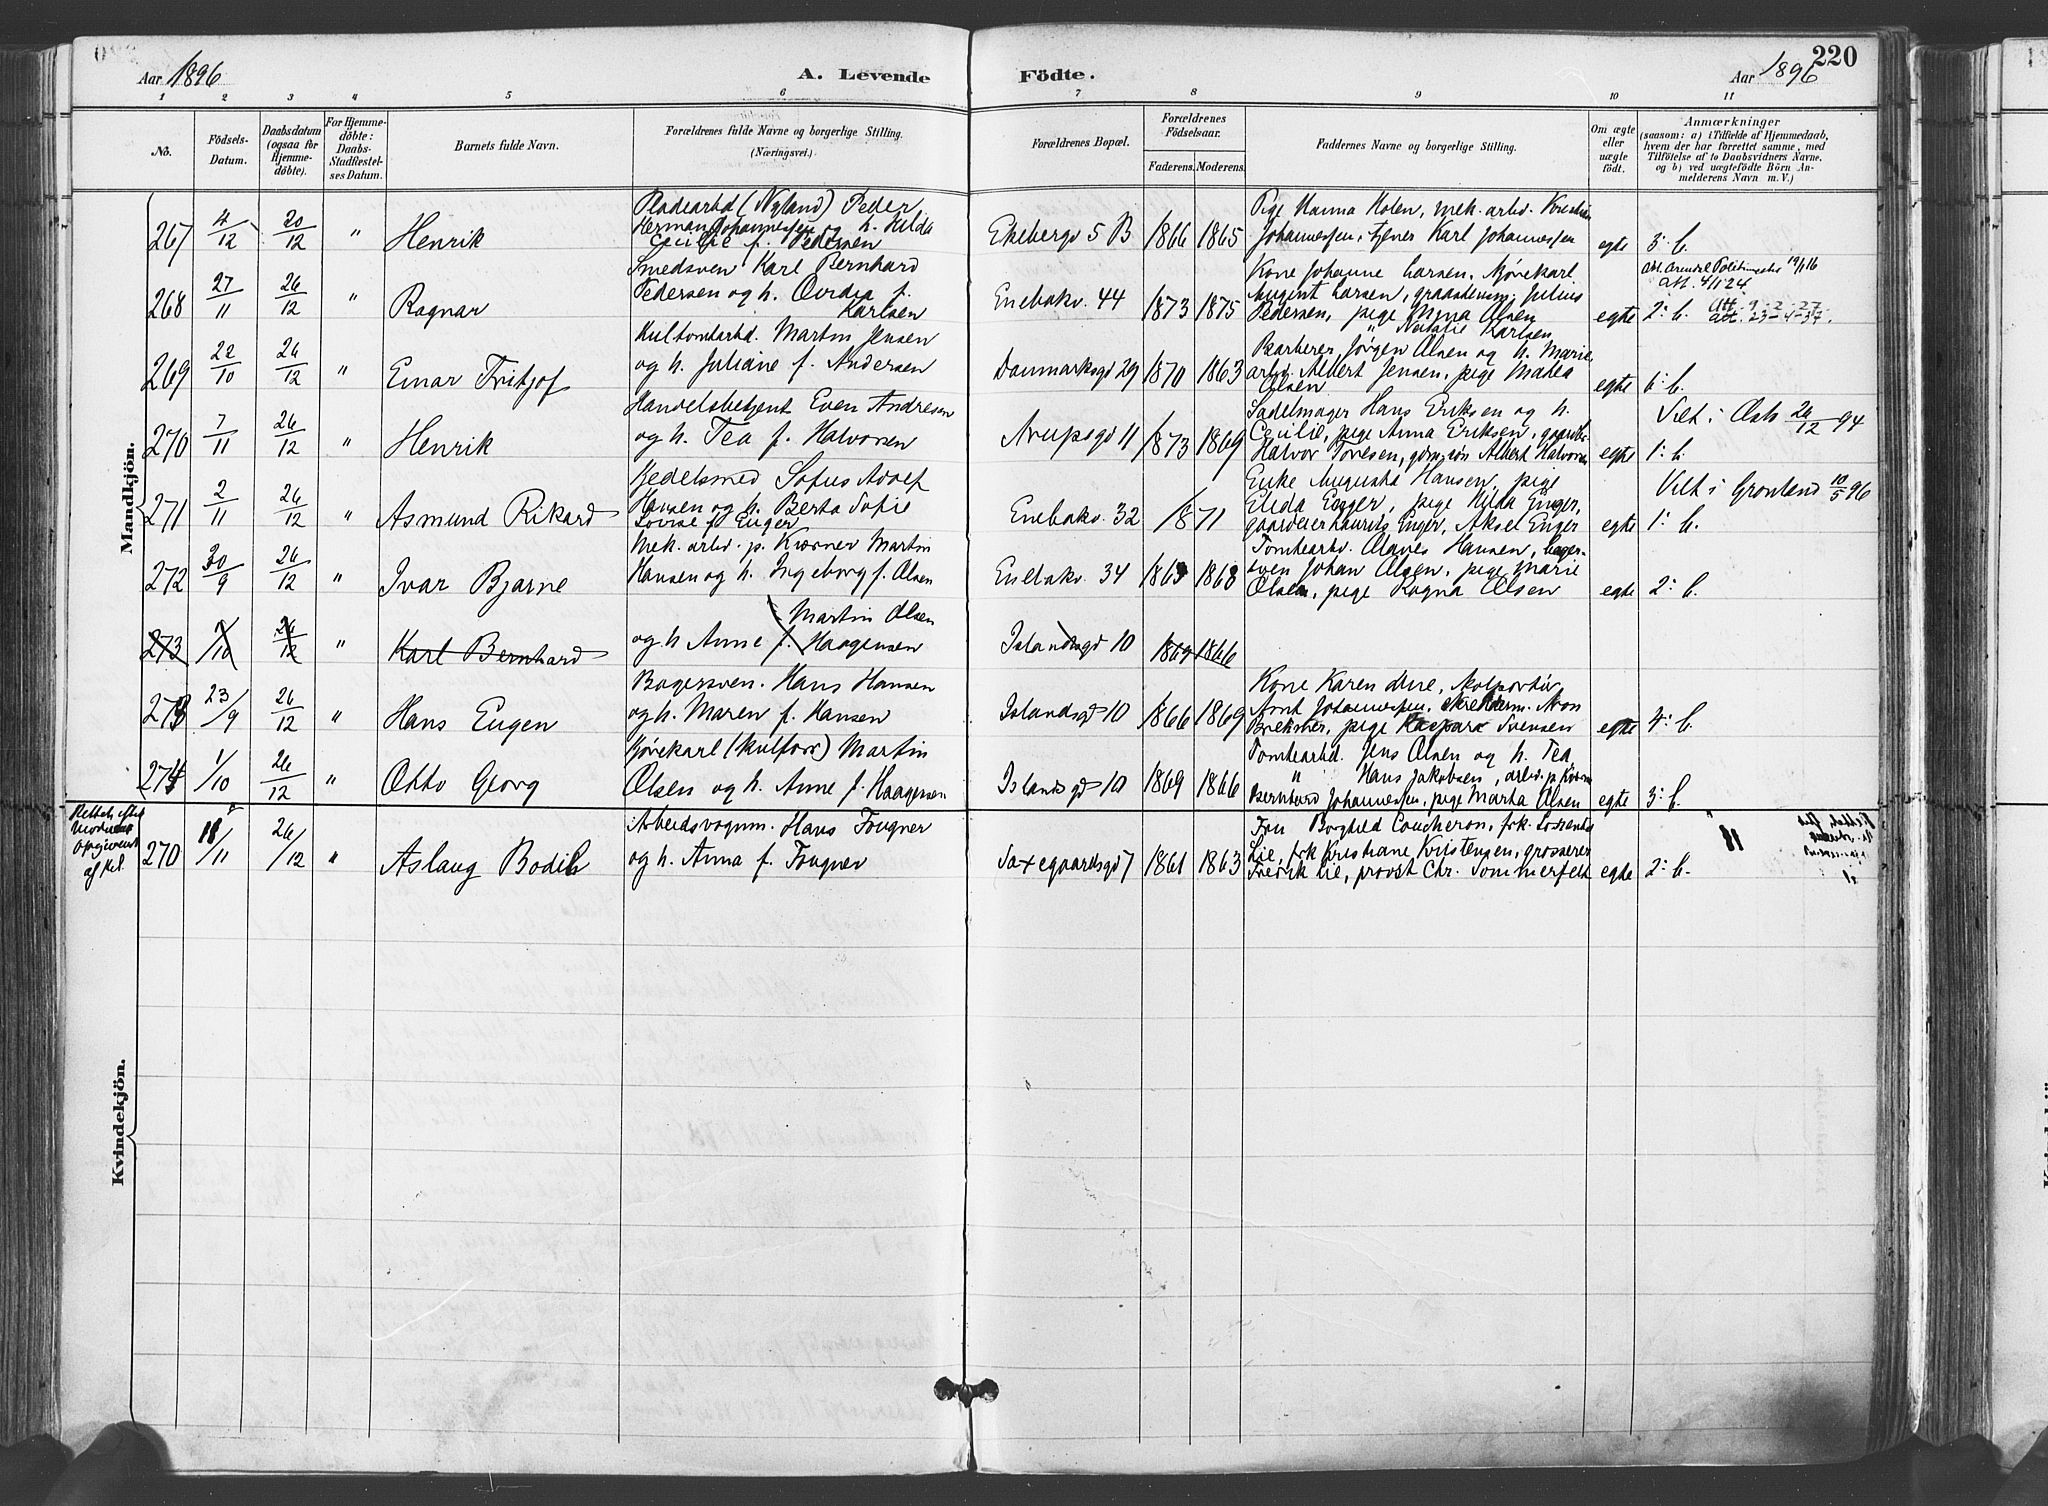 Aar 1896
A. Levende
Födte.
Aar 1896
220
1 2 3 4 5 6 7 8 9 10 11
No.
Födsels-
Datum.
Daabsdatum
(ogsaa for
Hjemme-
döbte).
For Hjemme-
döbte:
Daabs-
Stadfæstel-
ses Datum.
Barnets fulde Navn.
Forældrenes fulde Navne og borgerlige Stilling.
(Næringsvei.)
Forældrenes Bopæl.
Forældrenes
Födselsaar.
Faderens. Moderens.
Faddernes Navne og borgerlige Stilling.
Om ægte
eller
uægte
födt.
Anmærkninger
(saasom: a) i Tilfælde af Hjemmedaab,
hvem der har forrettet samme, med
Tilföielse af to Daabsvidners Navne,
og b) ved uægtefödte Börn An-
melderens Navn m. V.)
Mandkjön.
267 4/12 20/12 " Henrik
Pladearbd (Nyland) Peder
Herman Johannessen og h. Hilda
Cecilie f. Pedersen
Ekebergv 5 B 1866 1865
Pige Hanna Holen, mek. arbd. Kristian
Johannessen, tjener Karl Johannessen
egte 3. b.
268 27/11 26/12 " Ragnar
Smedsven Karl Bernhard
Pedersen og h. Ovidia f.
Karlsen
Enebakv. 44 1873 1875
Kone Johanne Larsen, kjörekarl
August Larsen, Julius
Pedersen, pige Mina Olsen
" Natalie Karlsen
egte 2. b.
Att. Arendal Politimester 19/1 16
att. 4/1 24
Att. 9-2-27
att. 23-4-37.
269 22/10 26/12 " Einar Fritjof
Kultomtarbd. Martin Jensen
og h. Juliane f. Andersen
Danmarksgd 29 1870 1863
Barberer Jörgen Olsen og h. Marie,
arbd. Albert Jensen, pige Matea
Olsen
egte 6. b.
270 7/11 26/12 " Henrik
Handelsbetjent Even Andresen
og h. Tea f. Halvorsen
Arupsgd 11 1873 1869
Sadelmager Hans Eriksen og h.
Cecilie, pige Anna Eriksen, gaardbr.
Halvor Toresen, gdm. sön Albert Halvorsen
egte 1. b.
Viet i Oslo 26/12 94
271 2/11 26/12 " Asmund Rikard
Gjedelsmed Sofus Adolf
Hansen og h. Berta Sofie
Lovise f. Enger
Enebakv. 32 1871
Enke Augusta Hansen, pige
Elida Enger, pige Hilda Enger,
gaardeier Laurits Enger, Aksel Enger
egte 1. b.
Viet i Grönland 10/5 96
272 30/9 26/12 " Ivar Bjarne
Mek. arbd. p. Kværner Martin
Hansen og h. Ingeborg f. Olsen
Enebakv. 34 1863 1868
Tomtearbd. Olaves Hansen, bager-
sven Johan Olsen, pige Marie
Olsen, pige Ragna Olsen
egte 2. b.
273 1/10 26/12 " Karl Bernhard
Martin Olsen
og h. Anne f. Haagensen
Islandsgd 10 1869 1866
273 23/9 26/12 " Hans Eugen
Bagersven. Hans Hansen
og h. Maren f. Hansen
Islandsgd 10 1866 1869
Kone Karen Mre, kolportör
Arnt Johannessen, skrædderm. Aron
Breksner, pige Kaspara Svensen
egte 4. b.
274 1/10 26/12 " Otto Georg
Kjörekarl (kulforr.) Martin
Olsen og h. Anne f. Haagensen
Islandsgd 10 1869 1866
Tomtearbd. Jens Olsen og h. Tea,
" Hans Jakobsen, arbd. p. Kværn
Bernhard Johannessen, pige Marta Olsen
egte 3. b.
Kvindekjön.
Rettet efter
Moderens
opgivende
af kl.
270 18/11 26/12 " Aslaug Bodil
Arbeidsvognm. Hans Fougner
og h. Anna f. Fougner
Saxegaardsgd 7 1861 1863
Fru Borghild Coucheron, frk. Lorentse
Lie, frk Kristiane Kristensen, grosserer
Fredrik Lie, provst Chr. Sommerfelt
egte 2. b.